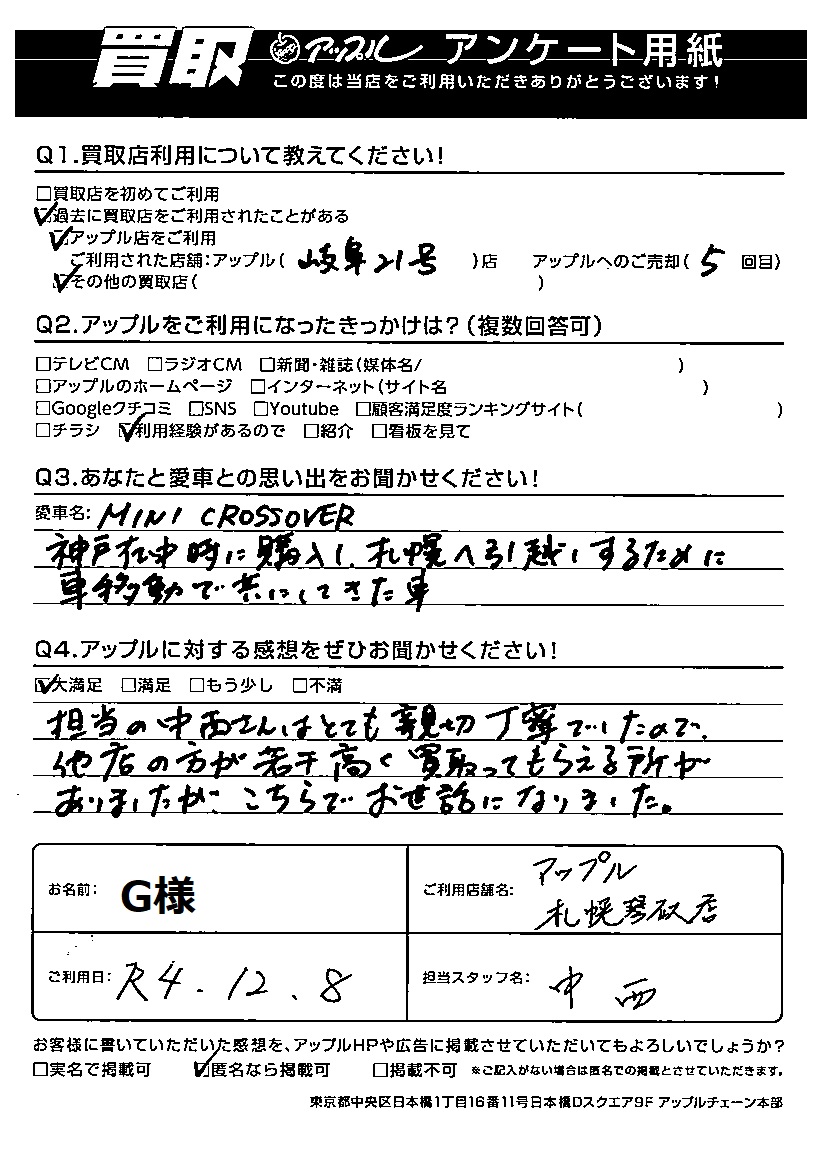 買取 アップル アンケート用紙
この度は当店をご利用いただきありがとうございます!
Q1.買取店利用について教えてください!
□買取店を初めてご利用
☑過去に買取店をご利用されたことがある
☑アップル店をご利用
ご利用された店舗:アップル( 岐阜21号 )店 アップルへのご売却( 5 回目)
☑その他の買取店( )
Q2.アップルをご利用になったきっかけは?(複数回答可)
□テレビCM □ラジオCM □新聞・雑誌(媒体名/ )
□アップルのホームページ □インターネット(サイト名 )
□Googleクチコミ □SNS □Youtube □顧客満足度ランキングサイト( )
□チラシ ☑利用経験があるので □紹介 □看板を見て
Q3.あなたと愛車との思い出をお聞かせください!
愛車名: MINI CROSSOVER
神戸在中時に購入し、札幌へ引越しするために
車移動で共にしてきた車
Q4.アップルに対する感想をぜひお聞かせください!
☑大満足 □満足 □もう少し □不満
担当の中西さんはとても親切丁寧でしたので、
他店の方が若干高く買取ってもらえる所が
ありましたが、こちらでお世話になりました。
お名前: G様
ご利用店舗名: アップル
札幌琴似店
ご利用日: R4.12.8
担当スタッフ名: 中西
お客様に書いていただいた感想を、アップルHPや広告に掲載させていただいてもよろしいでしょうか?
□実名で掲載可 ☑匿名なら掲載可 □掲載不可 ※ご記入がない場合は匿名での掲載とさせていただきます。
東京都中央区日本橋1丁目16番11号日本橋Dスクエア9F アップルチェーン本部